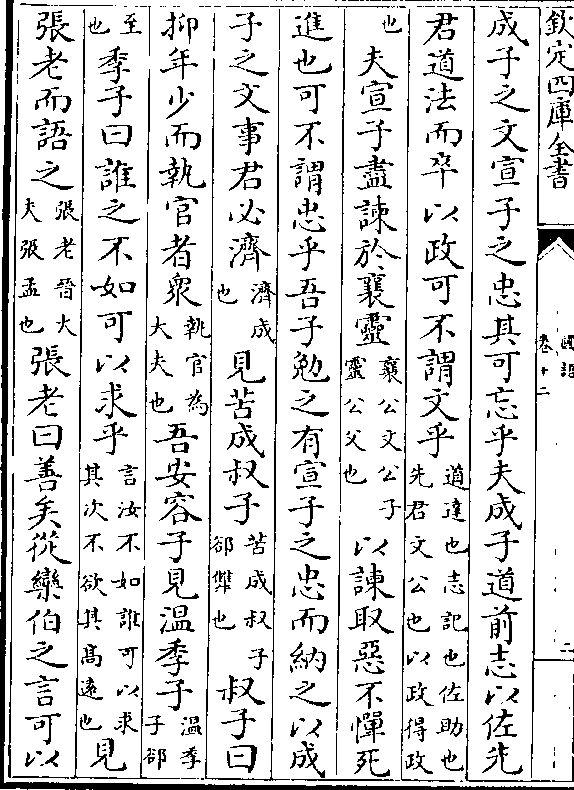 欽定四庫全書 國語 卷十二 二
成子之文宣子之忠其可忘乎夫成子道前志以佐先
君道法而卒以政可不謂文乎道達也志記也佐助也先君文公也以政得政
也夫宣子盡諫於襄靈襄公文公子靈公父也以諫取惡不憚死
進也可不謂忠乎吾子勉之有宣子之忠而納之以成
子之文事君必濟濟成也見苦成叔子苦成叔子郤犨也叔子曰
抑年少而執官者衆執官為大夫也吾安容子見溫季子溫季子郤
至也季子曰誰之不如可以求乎言汝不如誰可以求其次不欲其高遠也見
張老而語之張老晉大夫張孟也張老曰善矣從欒伯之言可以